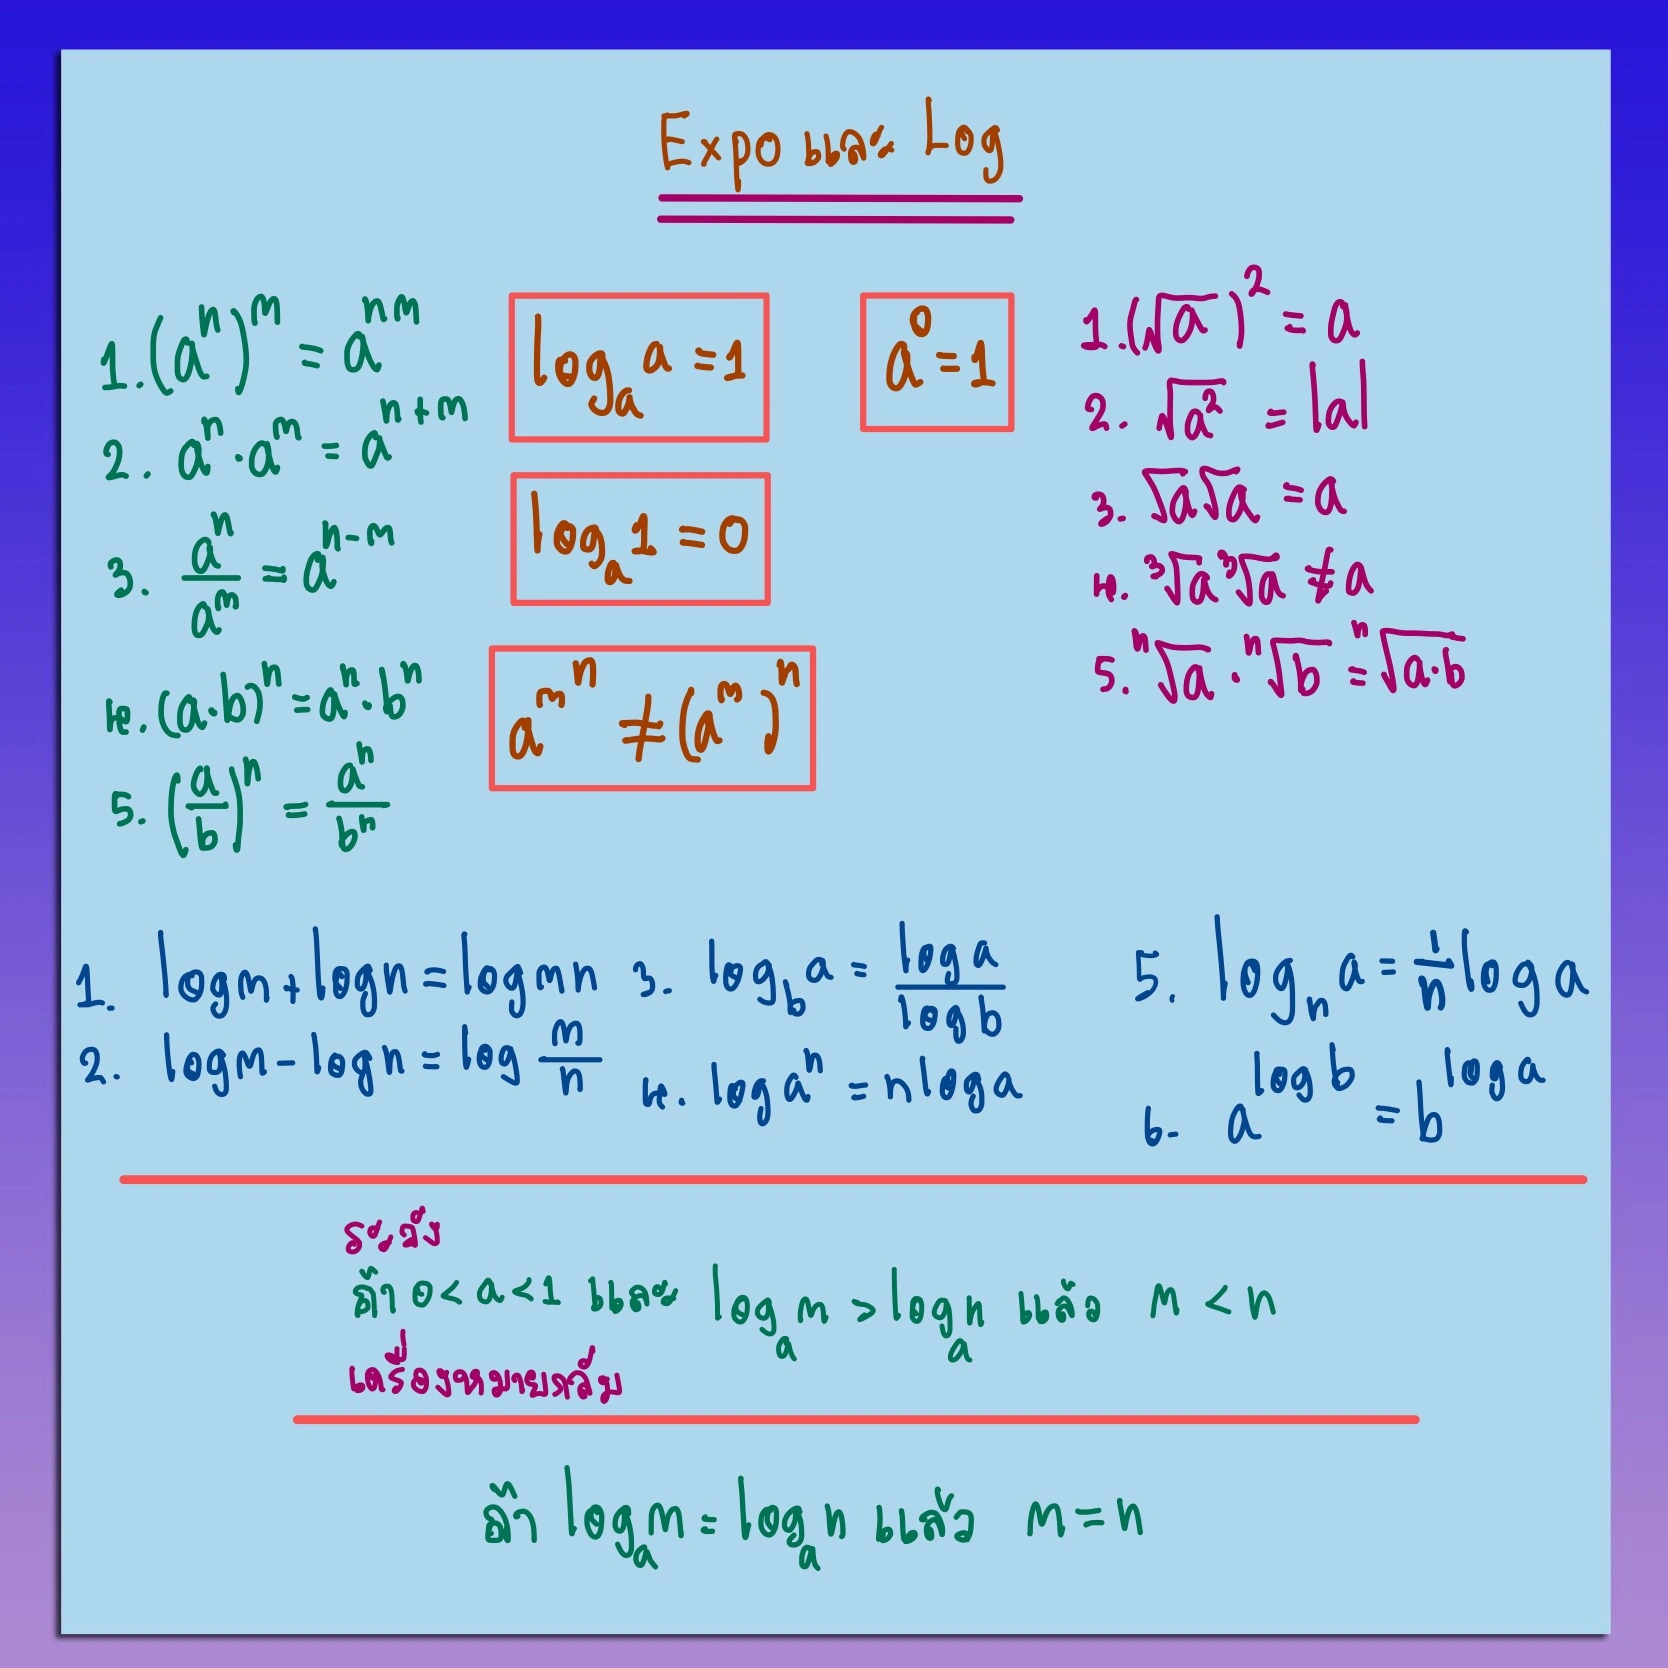 Expo และ Log
1. (aⁿ)ᵐ = aⁿᵐ
2. aⁿ · aᵐ = aⁿ⁺ᵐ
3. aⁿ/aᵐ = aⁿ⁻ᵐ
4. (a·b)ⁿ = aⁿ · bⁿ
5. (a/b)ⁿ = aⁿ/bⁿ
logₐ a = 1
a⁰ = 1
logₐ 1 = 0
a^m^n ≠ (a^m)^n
1. (√a)² = a
2. √a² = |a|
3. √a √a = a
๔. ³√a ³√a ≠ a
5. ⁿ√a · ⁿ√b = ⁿ√a·b
1. log m + log n = log mn
2. log m - log n = log m/n
3. log_b a = log a / log b
๔. log aⁿ = n log a
5. log_n a = 1/n log a
6. a^log b = b^log a
ระวัง
ถ้า 0 < a < 1 และ logₐ m > logₐ n แล้ว m < n
เครื่องหมายกลับ
ถ้า logₐ m = logₐ n แล้ว m = n